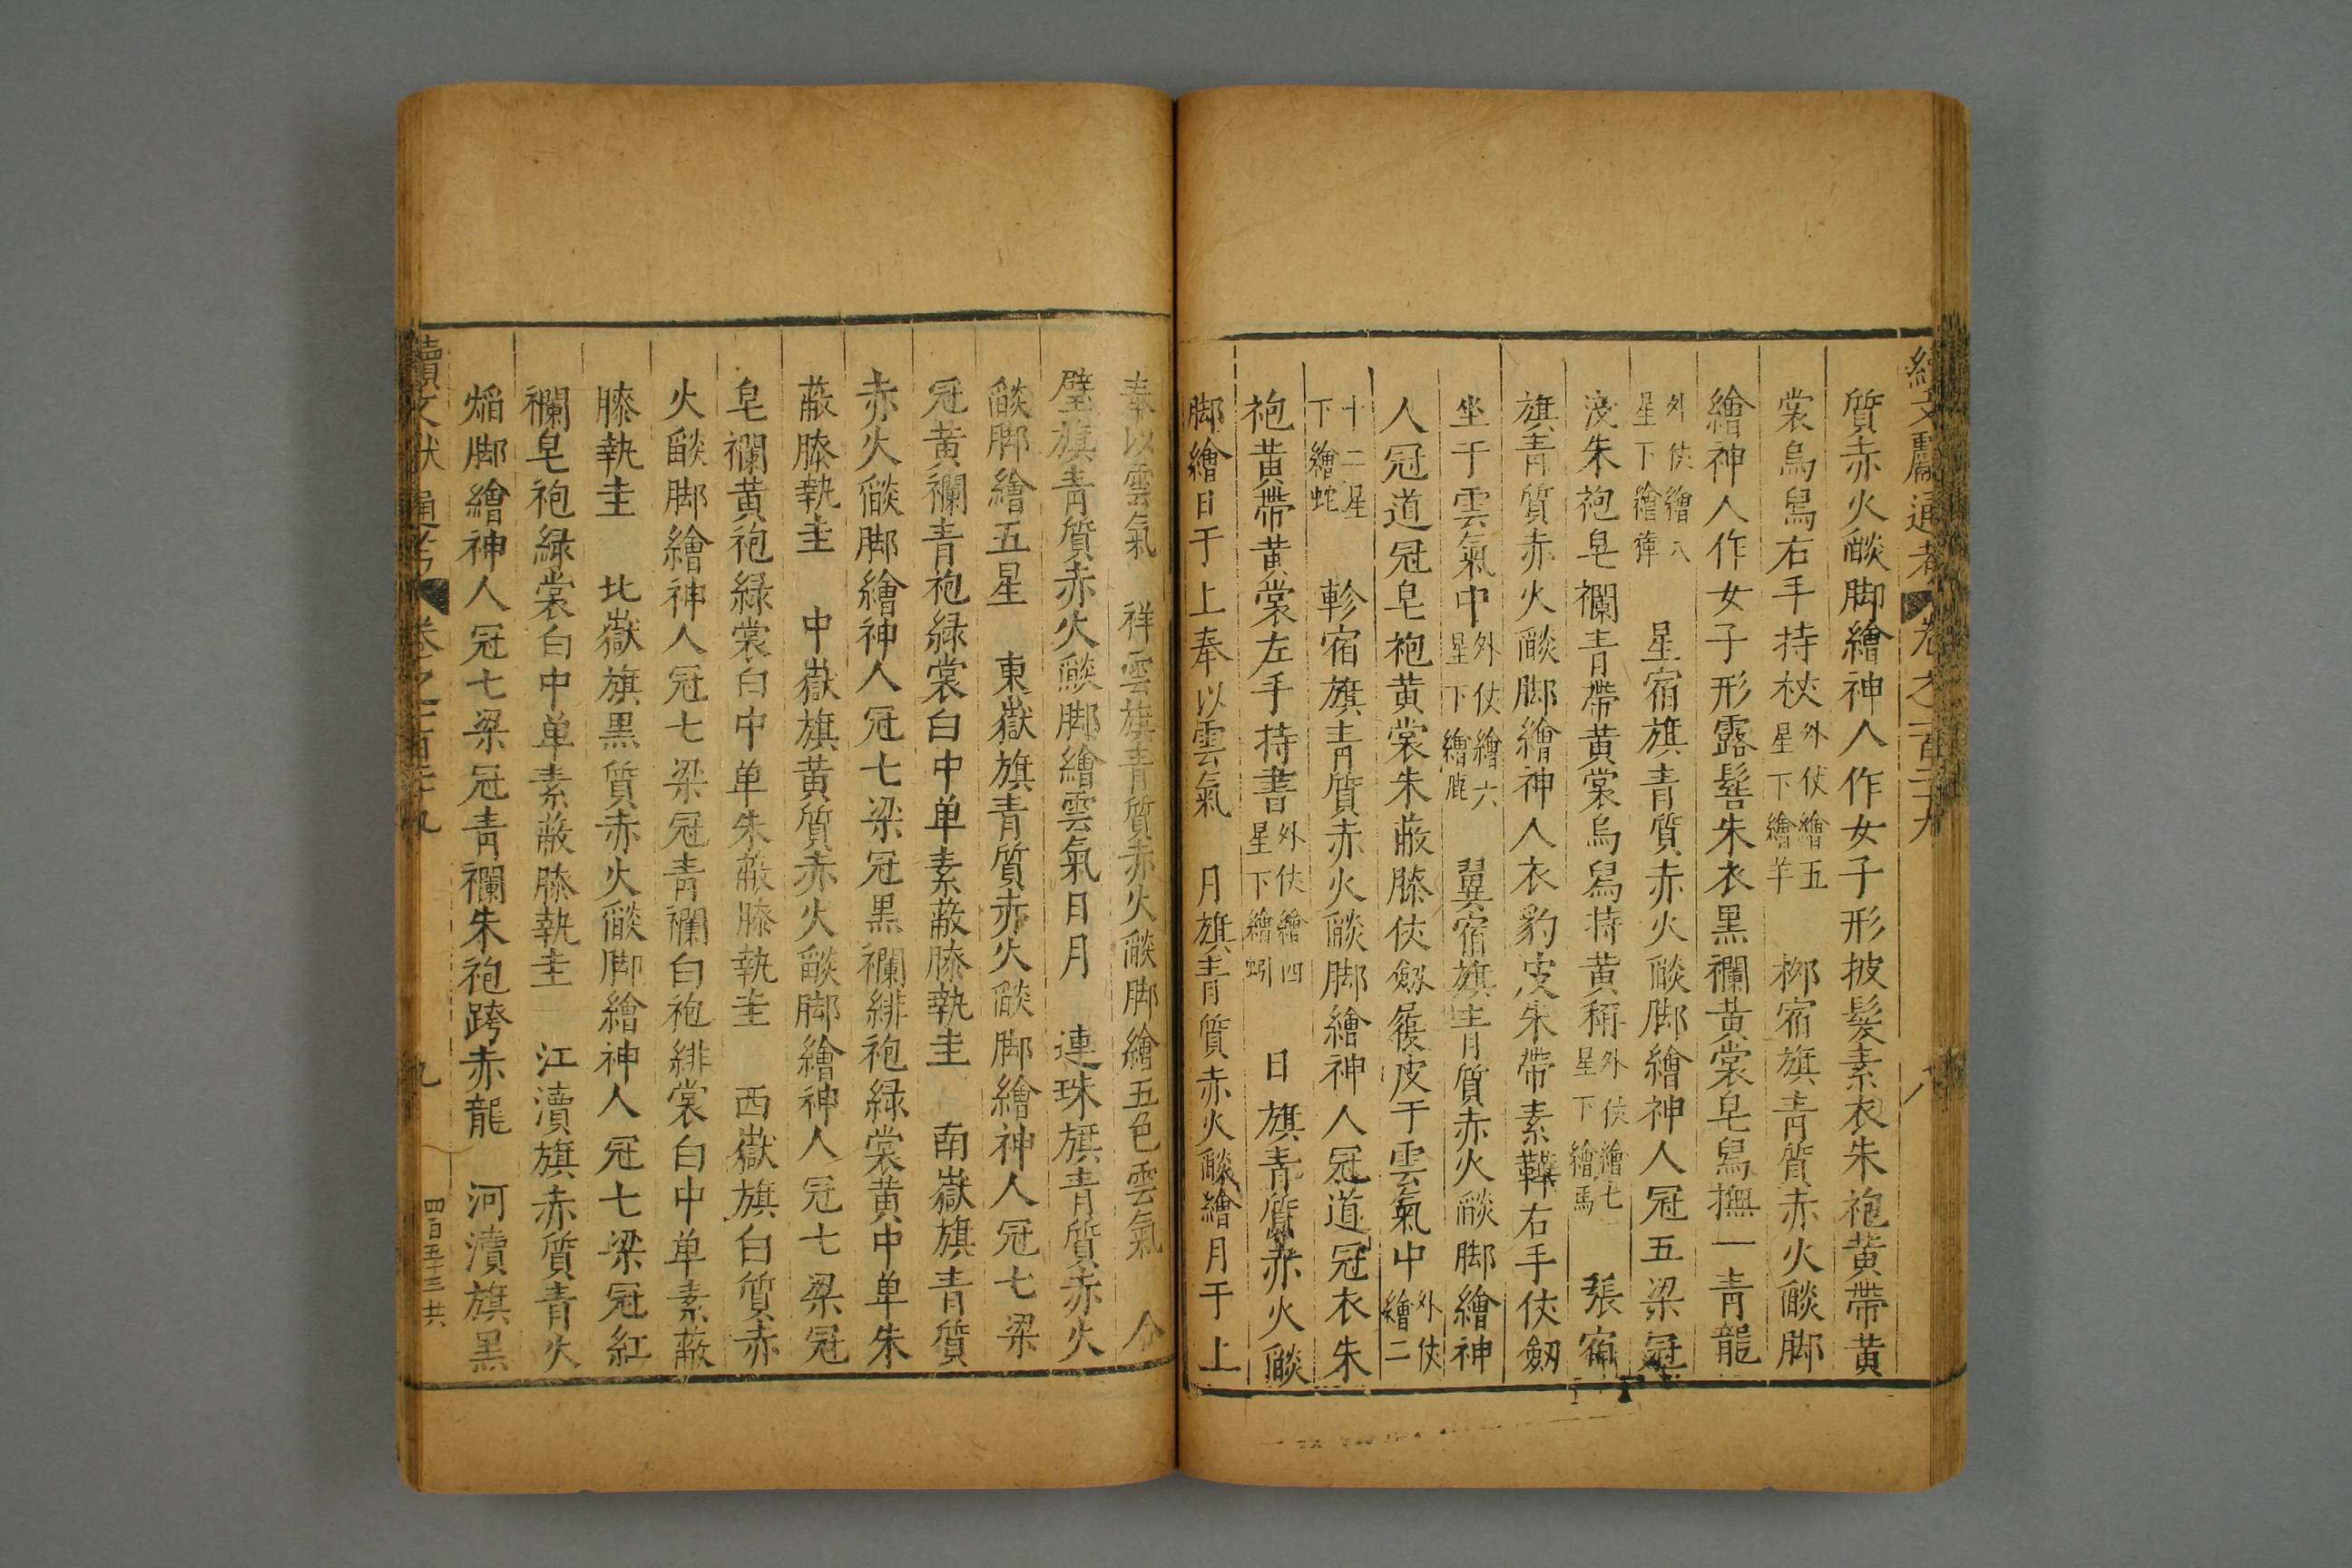 續文獻通考卷之一百二十九 八
質赤火燄脚繪神人作女子形披髮素衣朱袍黃帶黃
裳烏舄右手持杖外仗繪五星下繪羊 柳宿旗青質赤火燄脚
繪神人作女子形露髻朱衣黑襴黃裳皂舄撫一青龍
外仗繪八星下繪獐 星宿旗青質赤火燄脚繪神人冠五梁冠
淺朱袍皂襴青帶黃裳烏舄持黃稱外仗繪七星下繪馬 張宿
旗青質赤火燄脚繪神人衣豹皮朱帶素鞾右手仗劒
坐于雲氣中外仗繪六星下繪鹿 翼宿旗青質赤火燄脚繪神
人冠道冠皂袍黃裳朱蔽膝仗劒履皮于雲氣中外仗繪二
十二星下繪蛇 軫宿旗青質赤火燄脚繪神人冠道冠衣朱
袍黃帶黃裳左手持書外仗繪四星下繪蚓 日旗青質赤火燄
脚繪日于上奉以雲氣 月旗青質赤火燄繪月于上
奉以雲氣 祥雲旗青質赤火燄脚繪五色雲氣 合
璧旗青質赤火燄脚繪雲氣日月 連珠旗青質赤火
燄脚繪五星 東嶽旗青質赤火燄脚繪神人冠七梁
冠黃襴青袍緑裳白中单素蔽膝執圭 南嶽旗青質
赤火燄脚繪神人冠七梁冠黑襴緋袍緑裳黃中单朱
蔽膝執圭 中嶽旗黃質赤火燄脚繪神人冠七梁冠
皂襴黃袍緑裳白中单朱蔽膝執圭 西嶽旗白質赤
火燄脚繪神人冠七梁冠青襴白袍緋裳白中单素蔽
膝執圭 北嶽旗黑質赤火燄脚繪神人冠七梁冠紅
襴皂袍緑裳白中单素蔽膝執圭 江瀆旗赤質青火
焰脚繪神人冠七梁冠青襴朱袍跨赤龍 河瀆旗黑
續文獻通考卷之一百二十九 九 四百五十三共